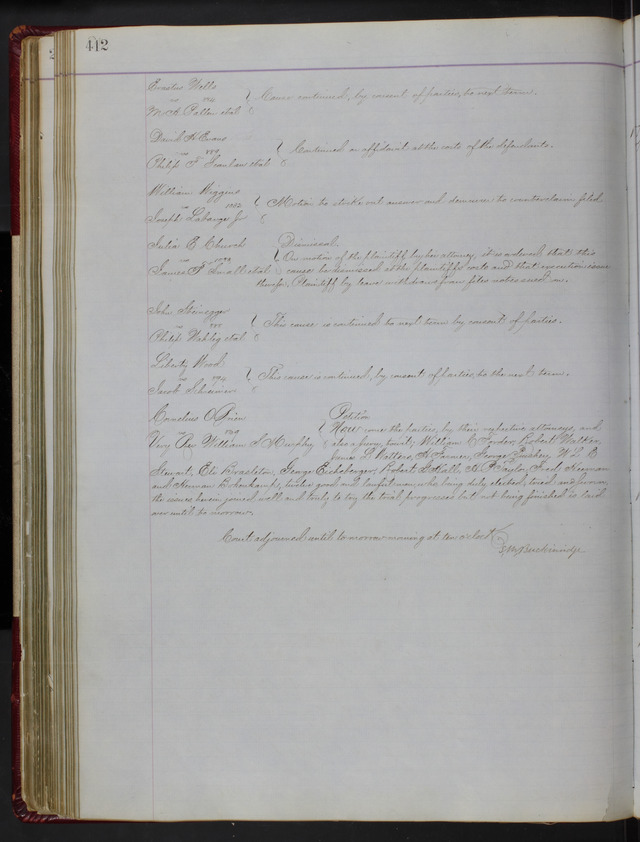 412
Erastus Wells
vs
M A Pallen et al } Cause continued, by consent of parties, to next term.
David H Evans
vs
Philip T Scanlan et al } Continued on affidavit at the costs of the defendants.
William Wiggins
vs
Joseph Labarge Jr } Motion to strike out answer and demurrer to counterclaim filed
Julia E. Church Dismissal.
vs } On motion of the plaintiff by her attorney, it is ordered that this
James F Small et al cause be dismissed at the plaintiff's costs and that execution issue
therefor. Plaintiff by leave withdraws from files notes sued on.
John Steinegger
vs
Philip et al } This cause is continued to next term by consent of parties.
Liberty Wood
vs
Jacob } This cause is continued, by consent of parties, to the next term.
Cornelius O'Brien Petition
vs } Now come the parties, by their respective attorneys, and
Very Rev William S Murphy also a jury, to wit; William C Robert Walker,
L Wallace, H George W. B
Stewart, Eli Brazelton, George Robert L Hall, H Taylor, Fred
and Herman twelve good and lawful men, who being duly elected, tried and sworn
the issues herein joined well and truly to try the trial progresses but not being finished is laid
over until to morrow.
Court adjourned until to morrow morning at ten o'clock
S M Breckinridge